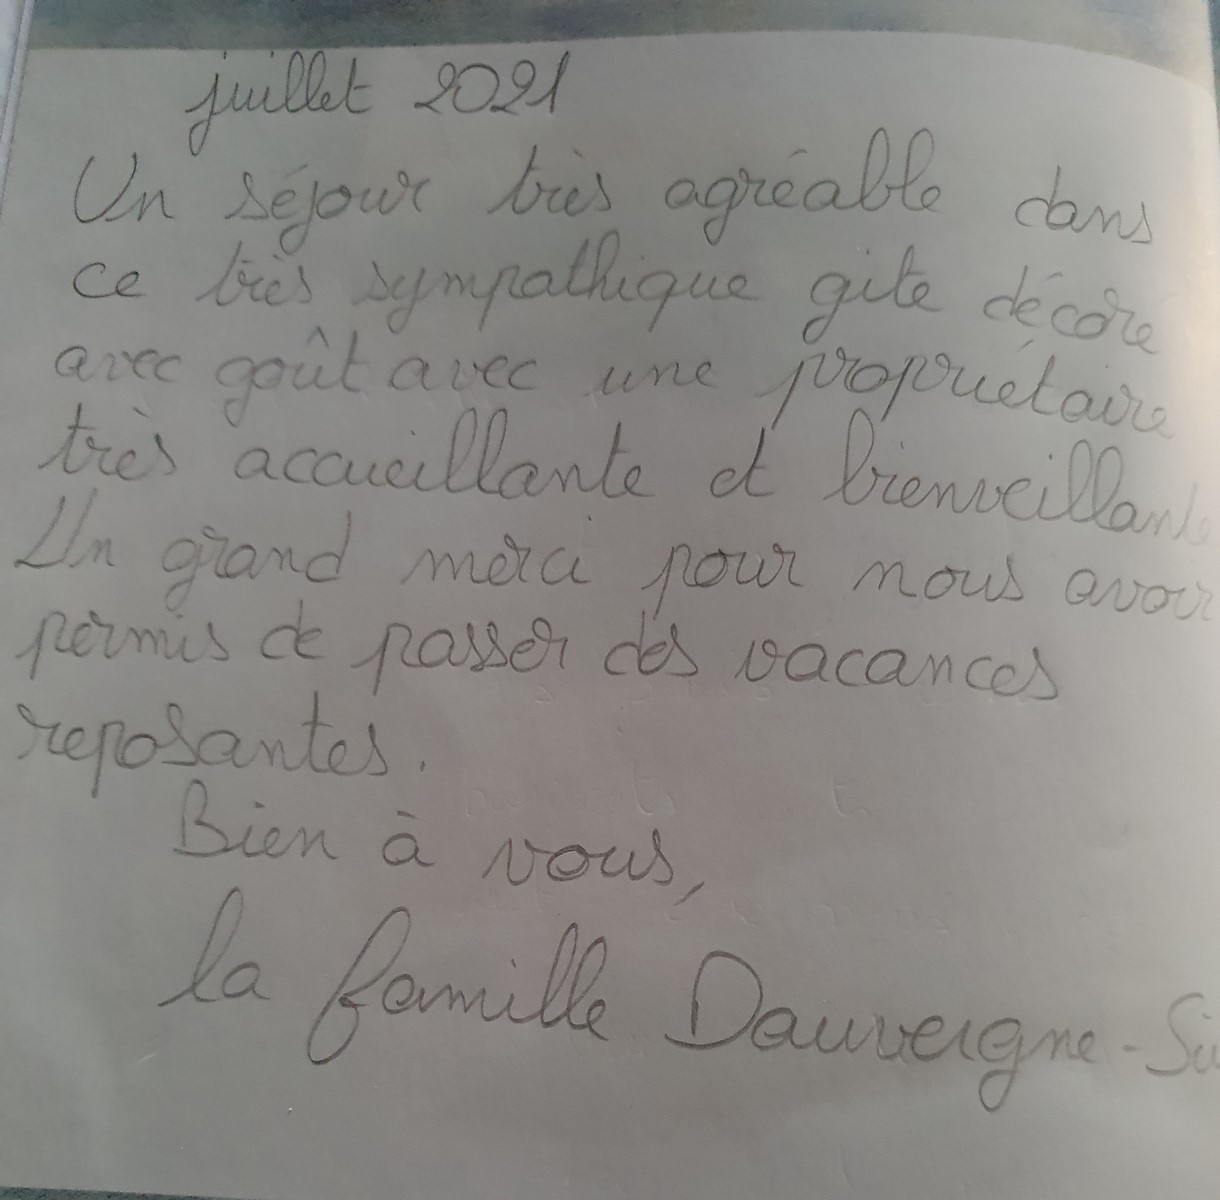 juillet 2021
Un séjour très agréable dans
ce très sympathique gite décoré
avec goût avec une propriétaire
très accueillante et bienveillante
Un grand merci pour nous avoir
permis de passer des vacances
reposantes.
Bien à vous,
la famille Dauvergne -